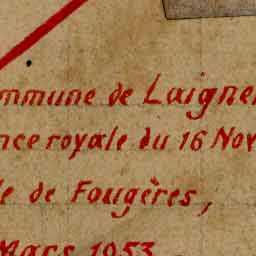 ommune de Laigne
nce royale du 16 Nov
le de Fougères,
Mars 1953